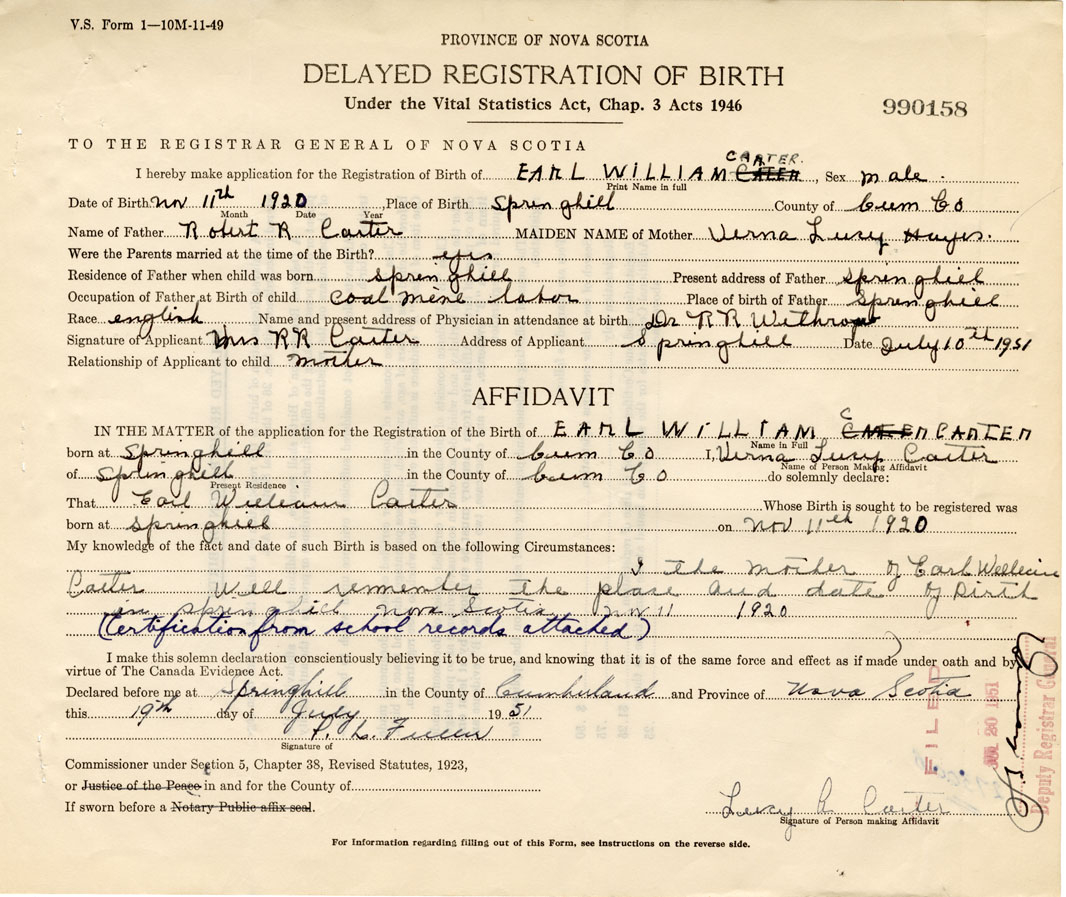 V.S. Form 1—10M-11-49
PROVINCE OF NOVA SCOTIA
DELAYED REGISTRATION OF BIRTH
Under the Vital Statistics Act, Chap. 3 Acts 1946
990158
TO THE REGISTRAR GENERAL OF NOVA SCOTIA
CARTER.
I hereby make application for the Registration of Birth of EARL WILLIAM CATER, Sex male.
Print Name in full
Date of Birth Nov 11th 1920, Place of Birth Springhill County of Cum Co
Month Date Year
Name of Father Robert R Carter MAIDEN NAME of Mother Verna Lusy Hayes.
Were the Parents married at the time of the Birth? yes
Residence of Father when child was born springhill Present address of Father springhill
Occupation of Father at Birth of child coal mine labor Place of birth of Father Springhill
Race english Name and present address of Physician in attendance at birth Dr R R Withrow
Signature of Applicant Mrs RR Carter Address of Applicant Springhill Date July 10th 1951
Relationship of Applicant to child mother
AFFIDAVIT
C
IN THE MATTER of the application for the Registration of the Birth of EARL WILLIAM CARTER
Name in Full
born at Springhill in the County of Cum Co I, Verna Lusy Carter
Name of Person Making Affidavit
of Springhill in the County of Cum Co do solemnly declare:
Present Residence
That Earl William Carter Whose Birth is sought to be registered was
born at Springhill on Nov 11th 1920
My knowledge of the fact and date of such Birth is based on the following Circumstances:
I the mother of Earl Wellecim
Carter well remember the plase and date of Birth
in springhill nova Scotia nov 11 1920
(Certification from school records attached)
I make this solemn declaration conscientiously believing it to be true, and knowing that it is of the same force and effect as if made under oath and by
virtue of The Canada Evidence Act.
Declared before me at Springhill in the County of Cumberland and Province of Nova Scotia
this 19th day of July 1951
Signature of
Commissioner under Section 5, Chapter 38, Revised Statutes, 1923,
or Justice of the Peace in and for the County of
If sworn before a Notary Public affix seal.
Lusy R Carter
Signature of Person making Affidavit
FILED
JUL 20 1951
Deputy Registrar General
For Information regarding filling out of this Form, see instructions on the reverse side.